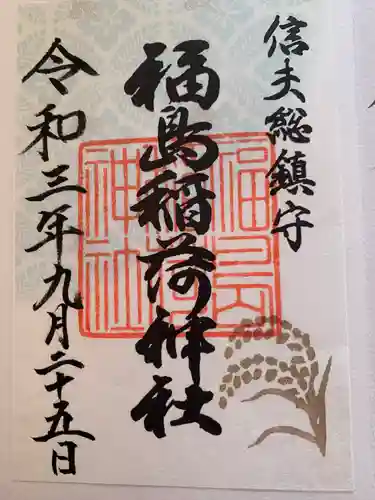 信夫総鎮守
福島稲荷神社
令和三年九月二十五日
福島
稲荷
神社